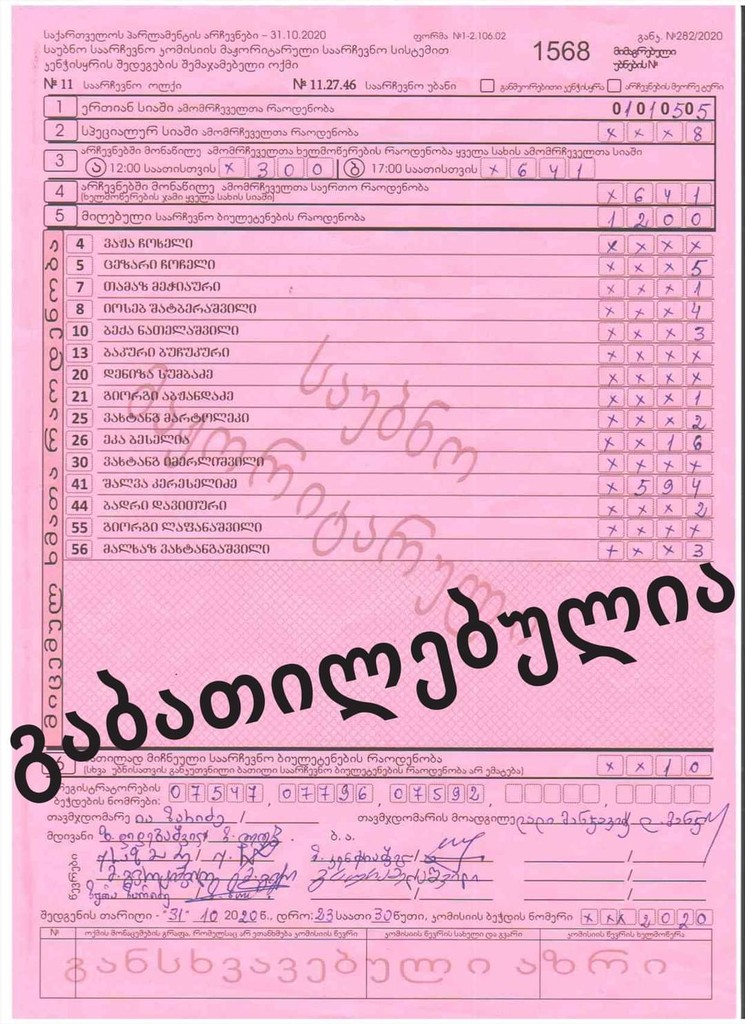 საქართველოს პარლამენტის არჩევნები – 31.10.2020 ფორმა №1-2.106.02 განკ. №282/2020
საუბნო საარჩევნო კომისიის მაჟორიტარული საარჩევნო სისტემით 1568 მიმაგრებული
კენჭისყრის შედეგების შემაჯამებელი ოქმი უბნების №
№ 11 საარჩევნო ოლქი № 11.27.46 საარჩევნო უბანი განმეორებითი კენჭისყრა არჩევნების მეორე ტური
1 ერთიან სიაში ამომრჩეველთა რაოდენობა 0101 0505
2 სპეციალურ სიაში ამომრჩეველთა რაოდენობა x x x 8
3 არჩევნებში მონაწილე ამომრჩეველთა ხელმოწერების რაოდენობა ყველა სახის ამომრჩეველთა სიაში
ა 12:00 საათისთვის x 3 0 0 ბ 17:00 საათისთვის x 6 4 1
4 არჩევნებში მონაწილე ამომრჩეველთა საერთო რაოდენობა x 6 4 1
(ხელმოწერების ჯამი ყველა სახის სიაში)
5 მიღებული საარჩევნო ბიულეტენების რაოდენობა 1 2 0 0
მიცემულ ხმათა რაოდენობა
4 ვაჟა ჩოხელი x x x x
5 ცეზარი ჩოჩელი x x x 5
7 თამაზ მეჭიაური x x x 1
8 იოსებ შატბერაშვილი x x x 4
10 ბექა ნათელაშვილი x x x 3
13 ბაკური ბუჩუკური x x x x
20 დენიზა სუმბაძე x x x x
21 გიორგი აბჟანდაძე x x x 1
25 ვახტანგ მარტოლეკი x x x 2
26 ეკა ბესელია x x 1 6
30 ვახტანგ იმერლიშვილი x x x x
41 შალვა კერესელიძე x 5 9 4
44 ბადრი დავითური x x x 2
55 გიორგი ლაფანაშვილი x x x x
56 მალხაზ ვახტანგაშვილი x x x 3
საუბნო
მაჟორიტარული
გაბათილებულია
6 ბათილად მიჩნეული საარჩევნო ბიულეტენების რაოდენობა x x 1 0
(სხვა უბნისათვის განკუთვნილი ბათილი საარჩევნო ბიულეტენების რაოდენობა არ ემატება)
რეგისტრატორების
ბეჭდების ნომრები: 07547 07796 07592
თავმჯდომარე / თავმჯდომარის მოადგილე
მდივანი ბ. ა.
წევრები
შედგენის თარიღი - "31" 10 2020 წ., დრო: 23 საათი 30 წუთი, კომისიის ბეჭდის ნომერი x x x 2 0 2 0
№ ოქმის მონაცემების გრაფა, რომელსაც არ ეთანხმება კომისიის წევრი კომისიის წევრის სახელი და გვარი კომისიის წევრის ხელმოწერა
განსხვავებული აზრი